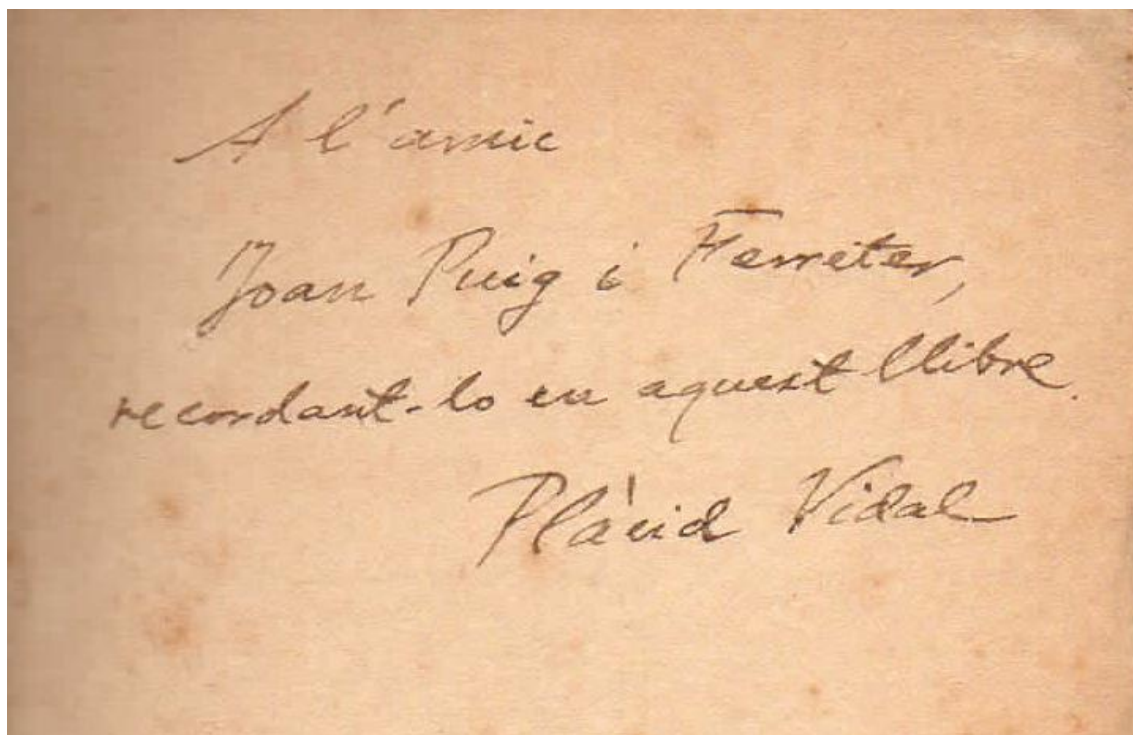 A l'amic
Joan Puig i Ferreter,
recordant-lo en aquest llibre.
Plàcid Vidal